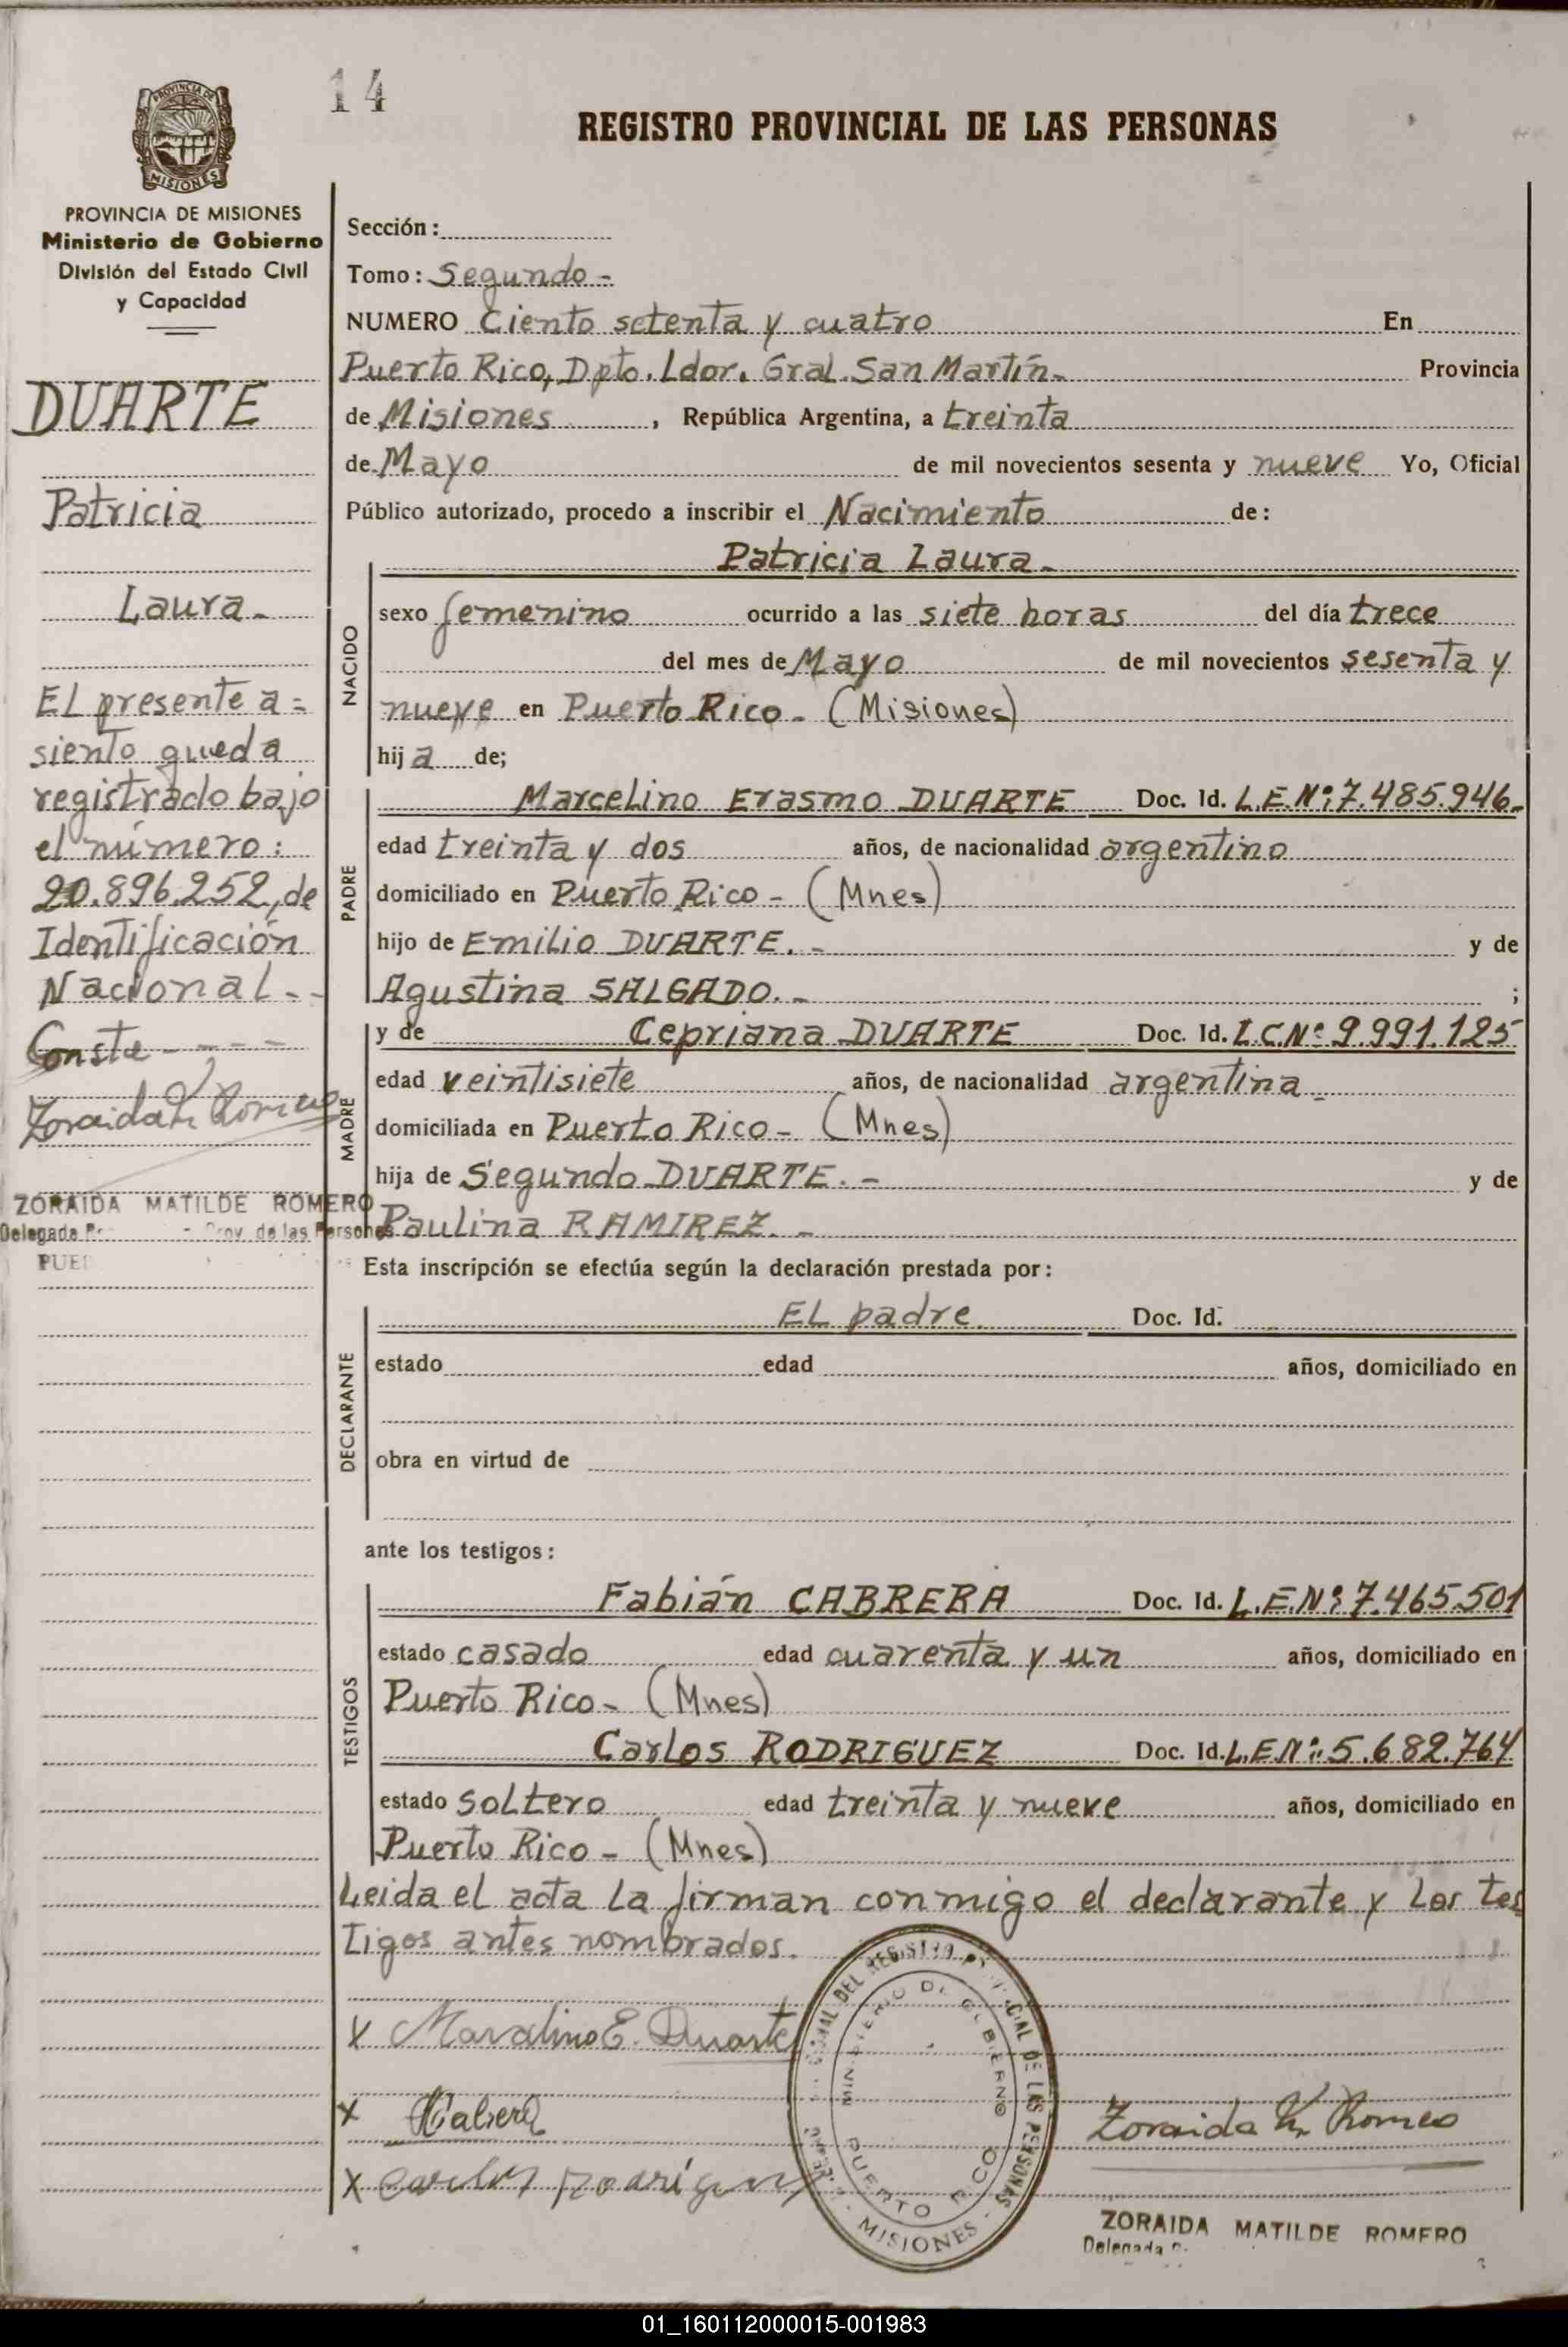 14
REGISTRO PROVINCIAL DE LAS PERSONAS
PROVINCIA DE MISIONES
MISIONES
PROVINCIA DE MISIONES
Ministerio de Gobierno
División del Estado Civil
y Capacidad
DUARTE
Patricia
Laura.-
El presente a=
siento queda
registrado bajo
el número:
20.896.252, de
Identificación
Nacional.-
Conste - - - -
Zoraida M. Romero
ZORAIDA MATILDE ROMERO
Delegada Prov. de las Personas
Sección:
Tomo: Segundo-
NUMERO Ciento setenta y cuatro En
Puerto Rico, Dpto. Ldor. Gral. San Martín.- Provincia
de Misiones, República Argentina, a treinta
de Mayo de mil novecientos sesenta y nueve Yo, Oficial
Público autorizado, procedo a inscribir el Nacimiento de:
NACIDO
Patricia Laura.-
sexo femenino ocurrido a las siete horas del día trece
del mes de Mayo de mil novecientos sesenta y
nueve en Puerto Rico.- (Misiones)
hija de;
PADRE
Marcelino Erasmo DUARTE Doc. Id. L.E.Nº:7.485.946.-
edad treinta y dos años, de nacionalidad argentino
domiciliado en Puerto Rico - (Mnes)
hijo de Emilio DUARTE.- y de
Agustina SALGADO.- ;
MADRE
y de Cepriana DUARTE Doc. Id. L.C.Nº: 9.991.125
edad veintisiete años, de nacionalidad argentina.-
domiciliada en Puerto Rico- (Mnes)
hija de Segundo DUARTE.- y de
Paulina RAMIREZ.-
Esta inscripción se efectúa según la declaración prestada por:
DECLARANTE
El padre. Doc. Id.
estado edad años, domiciliado en
obra en virtud de
ante los testigos:
TESTIGOS
Fabián CABRERA Doc. Id. L.E.Nº:7.465.501
estado casado edad cuarenta y un años, domiciliado en
Puerto Rico- (Mnes)
Carlos RODRIGUEZ Doc. Id. L.E.Nº:5.682.764
estado soltero edad treinta y nueve años, domiciliado en
Puerto Rico - (Mnes)
Leida el acta la firman conmigo el declarante y los tes
tigos antes nombrados.
X Marcelino E. Duarte
X Cabrera
X Carlos Rodríguez
DEL REGISTRO PROVINCIAL DE LAS PERSONAS
MINISTERIO DE GOBIERNO
PUERTO RICO
- MISIONES -
Zoraida M. Romero
ZORAIDA MATILDE ROMERO
Delegada
01_160112000015-001983